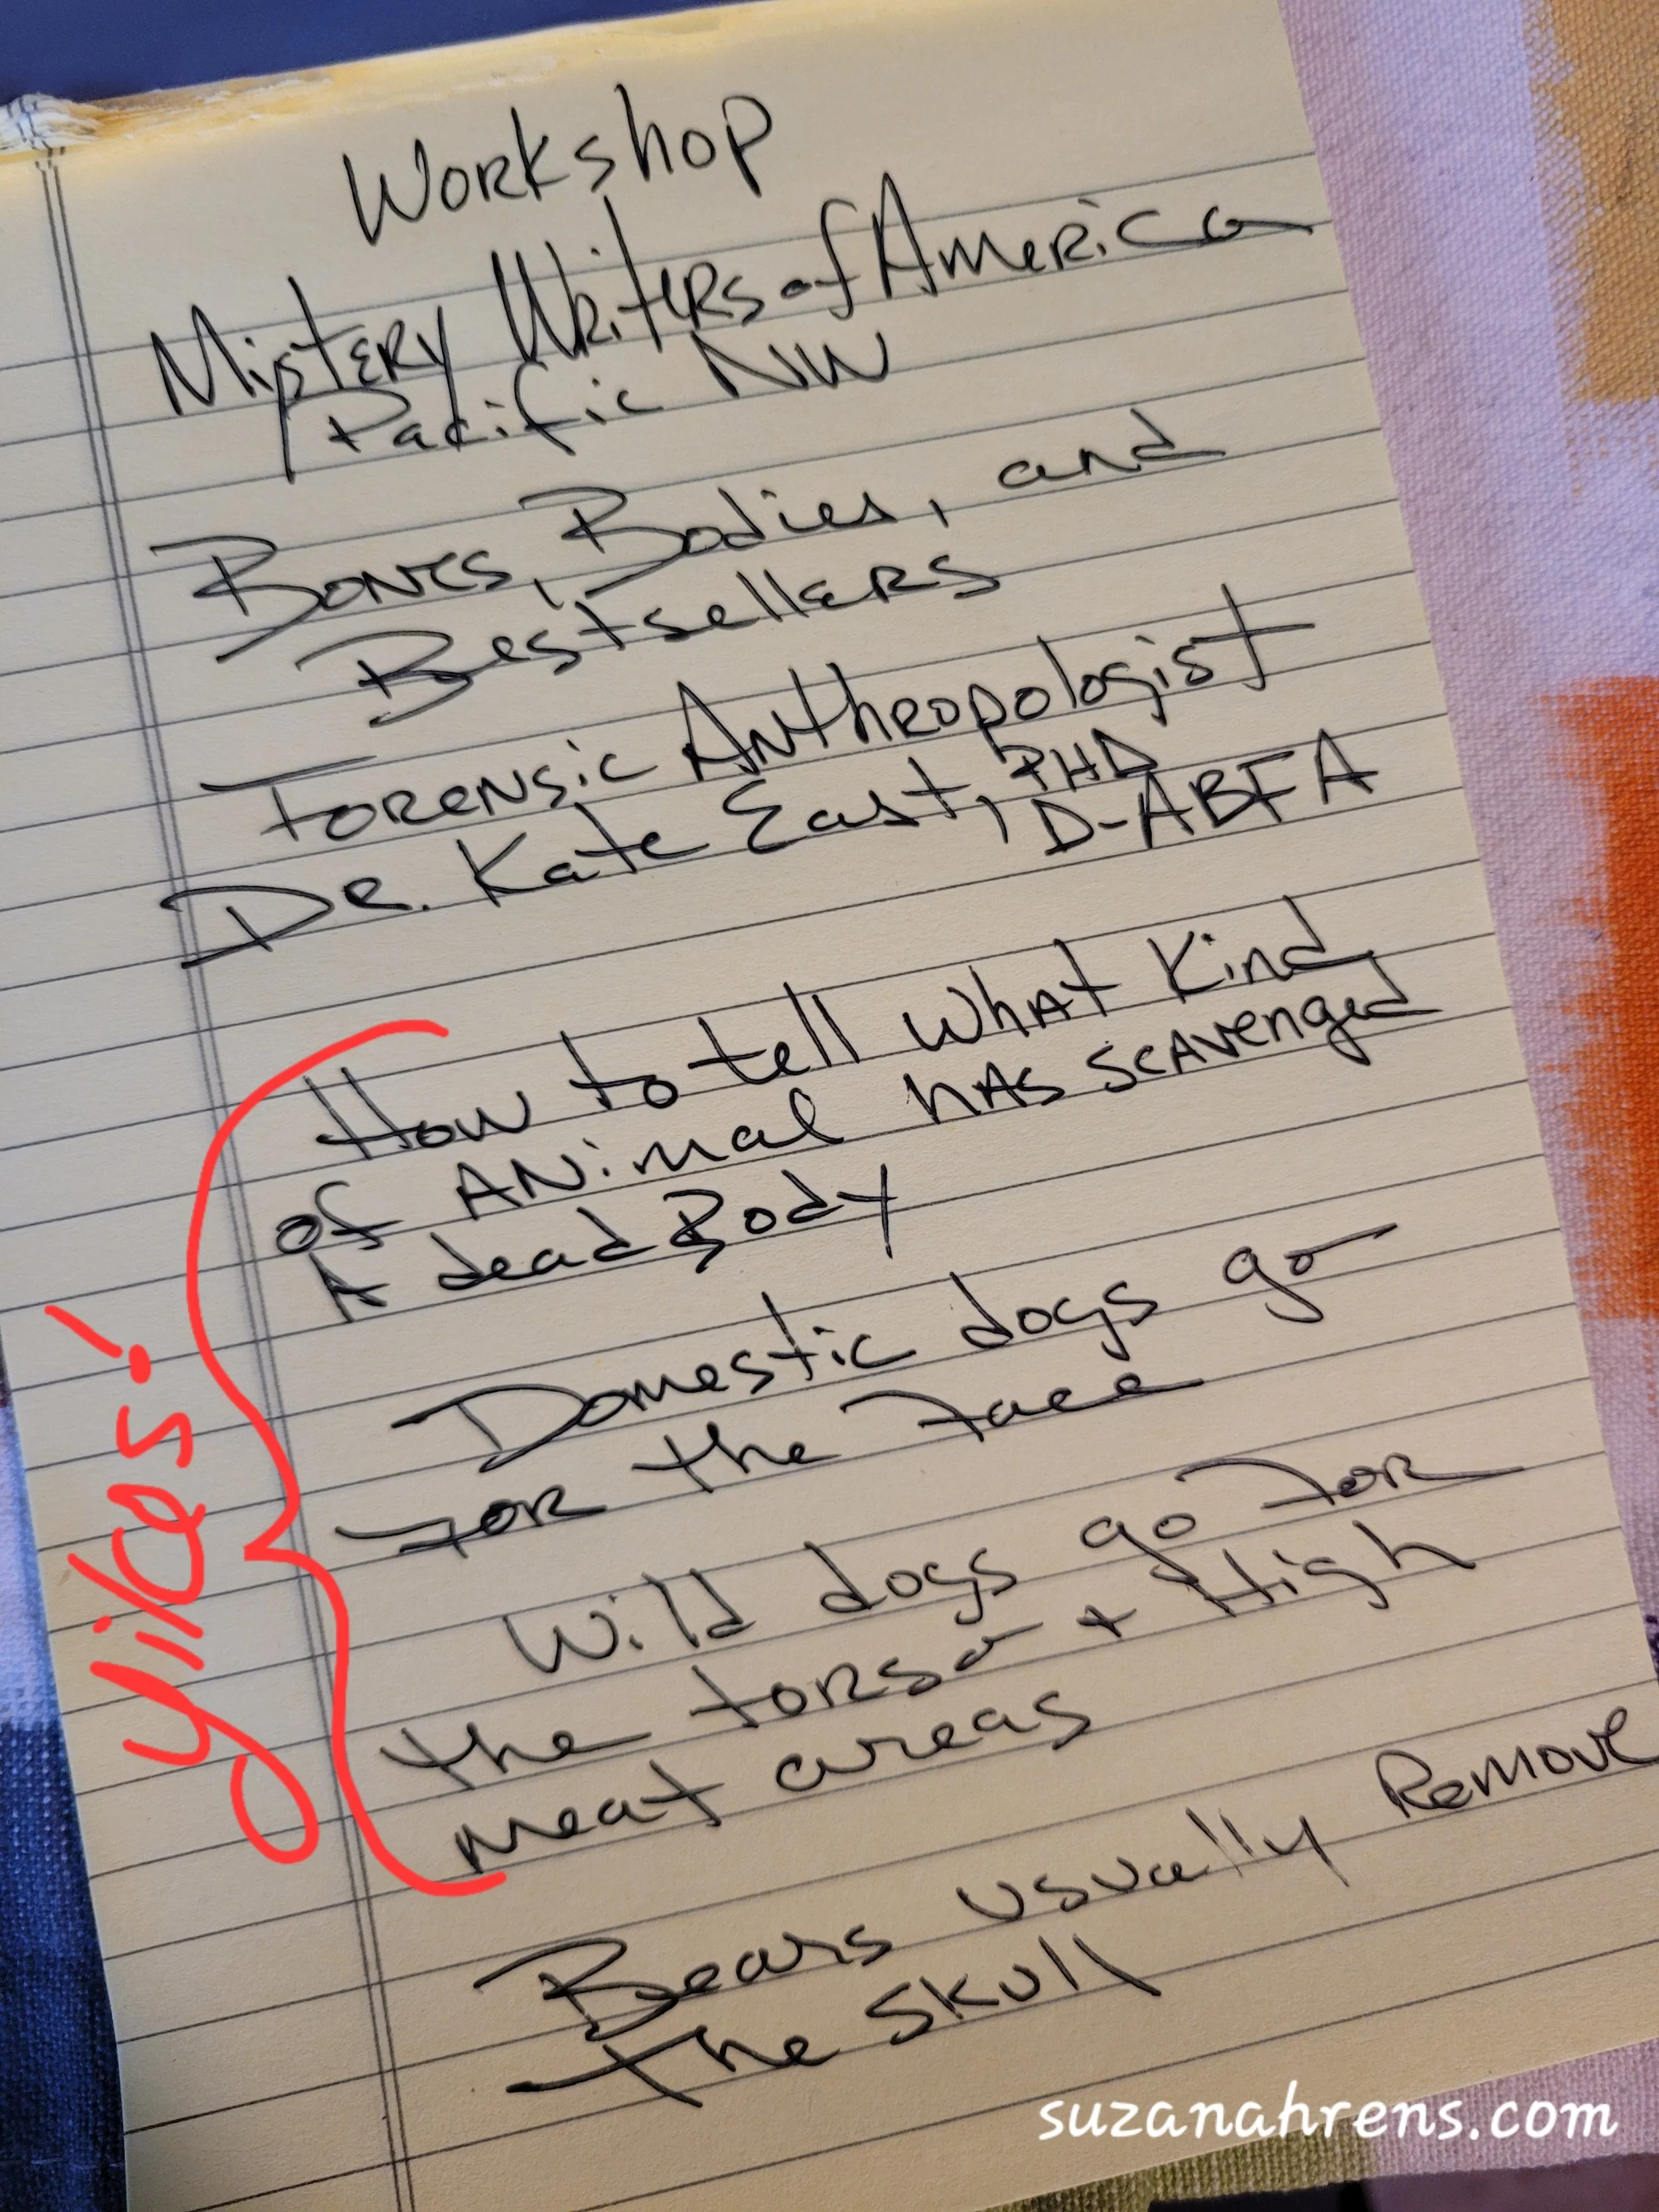 Workshop
Mistery Writers of America
Pacific NW
Bones, Bodies, and
Bestsellers
Forensic Anthropologist
Dr. Kate East, PHD
D-ABFA
How to tell what kind
of Animal has scavenged
A dead Body
Domestic dogs go
for the face
Wild dogs go for
the torso + High
meat areas
Bears usually Remove
the skull
yikes!
suzanahrens.com